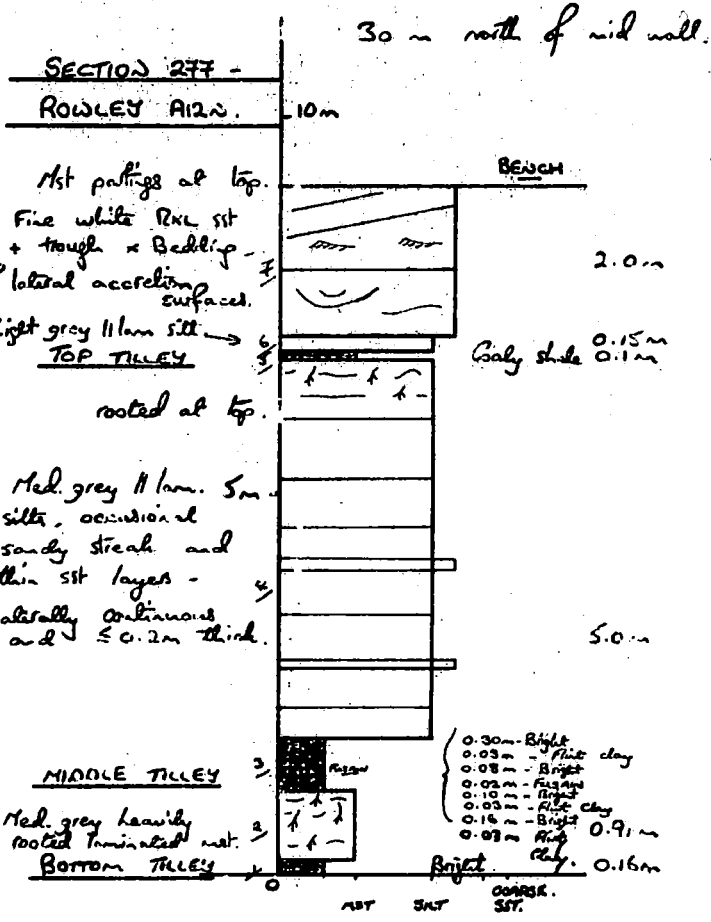 30 m north of mid wall.
SECTION 277 -
ROWLEY A12N.
10m
BENCH
Mst partings at top.
Fine white RXL sst
+ trough x Bedding -
7
lateral accretion
surfaces.
2.0m
light grey // lam silt →
6
0.15m
TOP TILLEY
5
Coaly shale 0.1m
rooted at top.
Med. grey // lam. 5m
silts, occasional
sandy streak and
thin sst layers -
4
laterally continuous
and ≤ 0.2m thick.
5.0m
0.30m - Bright
0.03m - Flint clay
0.08m - Bright
0.02m - Fusain
0.10m - Bright
0.03m - Flint Clay
0.16m - Bright
0.03m Flint
Clay.
0.91m
3
MIDDLE TILLEY
Fusain
Med. grey heavily
2
rooted laminated mst.
BOTTOM TILLEY
1
Bright
0.16m
0
MST SILT COARSE
SST.